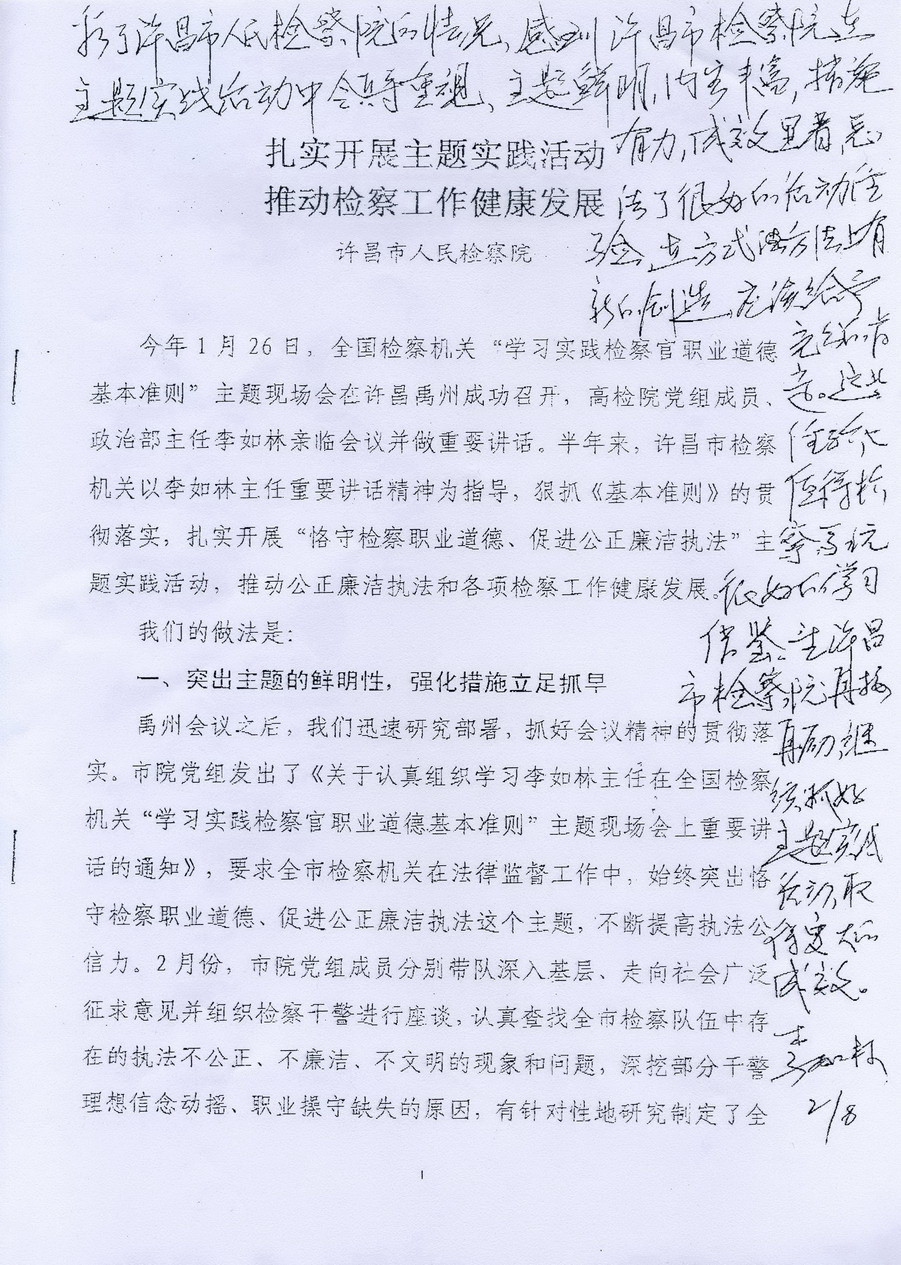 看了许昌市人民检察院的情况、感到许昌市检察院在
主题实践活动中领导重视、主题鲜明,内容丰富,措施
有力,成效显著,总
结了很好的活动经
验、在方式方法上有
新的创造,应该给予
充分的肯
定。这些
经验也
值得检
察系统
很好的学习
借鉴。望许昌
市检察院再接
再励,继
续抓好
主题实践
活动,取
得更大的
成效。
李如林
2/8
扎实开展主题实践活动
推动检察工作健康发展
许昌市人民检察院
今年1月26日,全国检察机关“学习实践检察官职业道德
基本准则”主题现场会在许昌禹州成功召开,高检院党组成员、
政治部主任李如林亲临会议并做重要讲话。半年来,许昌市检察
机关以李如林主任重要讲话精神为指导,狠抓《基本准则》的贯
彻落实,扎实开展“恪守检察职业道德、促进公正廉洁执法”主
题实践活动,推动公正廉洁执法和各项检察工作健康发展。
我们的做法是:
一、突出主题的鲜明性,强化措施立足抓早
禹州会议之后,我们迅速研究部署,抓好会议精神的贯彻落
实。市院党组发出了《关于认真组织学习李如林主任在全国检察
机关“学习实践检察官职业道德基本准则”主题现场会上重要讲
话的通知》,要求全市检察机关在法律监督工作中,始终突出恪
守检察职业道德、促进公正廉洁执法这个主题,不断提高执法公
信力。2月份,市院党组成员分别带队深入基层、走向社会广泛
征求意见并组织检察干警进行座谈,认真查找全市检察队伍中存
在的执法不公正、不廉洁、不文明的现象和问题,深挖部分干警
理想信念动摇、职业操守缺失的原因,有针对性地研究制定了全
1